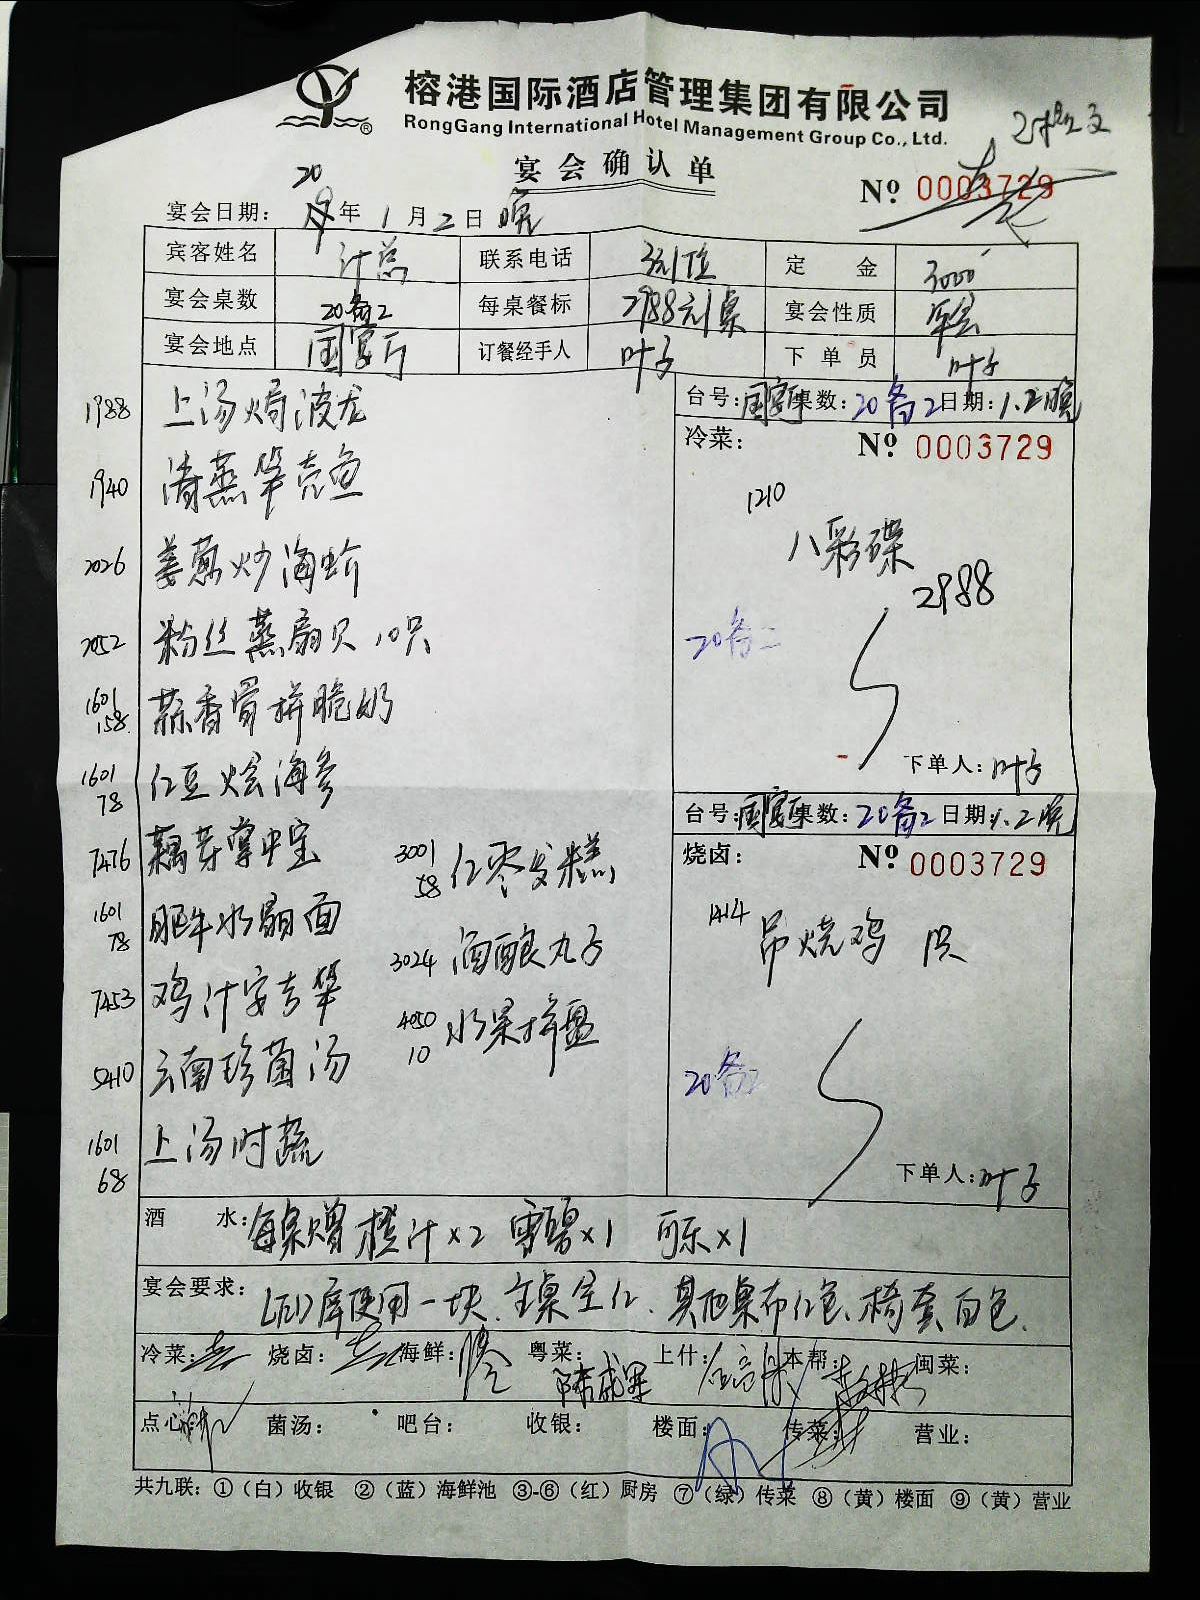 榕港国际酒店管理集团有限公司
RongGang International Hotel Management Group Co., Ltd.
宴会确认单
№ 0003729
宴会日期: 20 19年 1月 2日 晚
宾客姓名 计总 联系电话 3元/位 定金 3000
宴会桌数 20备2 每桌餐标 2988元/桌 宴会性质
宴会地点 国宴厅 订餐经手人 叶子 下单员 叶子
台号: 国宴厅 桌数: 20备2 日期: 1.2晚
1988 上汤焗波龙
冷菜: № 0003729
1940 清蒸笋壳鱼
1210 八彩碟
2988
2026 姜葱炒海蚧
2052 粉丝蒸扇贝 10只
20备二
1601 158 蒜香骨拼脆奶
下单人: 叶子
1601 78 红豆烩海参
台号: 国宴厅 桌数: 20备2 日期: 1.2晚
7476 藕芽掌中宝
3001 58 红枣发糕
烧卤: № 0003729
1601 78 肥牛水晶面
1414 吊烧鸡 1只
3024 酒酿丸子
7453 鸡汁安吉笋
4050 10 水果拼盘
5410 云南珍菌汤
20备2
1601 68 上汤时蔬
下单人: 叶子
酒水: 每桌赠橙汁×2 雪碧×1 可乐×1
宴会要求: LED屏使用一块、主桌全红、其他桌布红色、椅套白色.
冷菜: 烧卤: 海鲜: 粤菜: 上什: 本帮: 闽菜:
点心: 菌汤: 吧台: 收银: 楼面: 传菜: 营业:
共九联: ①(白)收银 ②(蓝)海鲜池 ③-⑥(红)厨房 ⑦(绿)传菜 ⑧(黄)楼面 ⑨(黄)营业